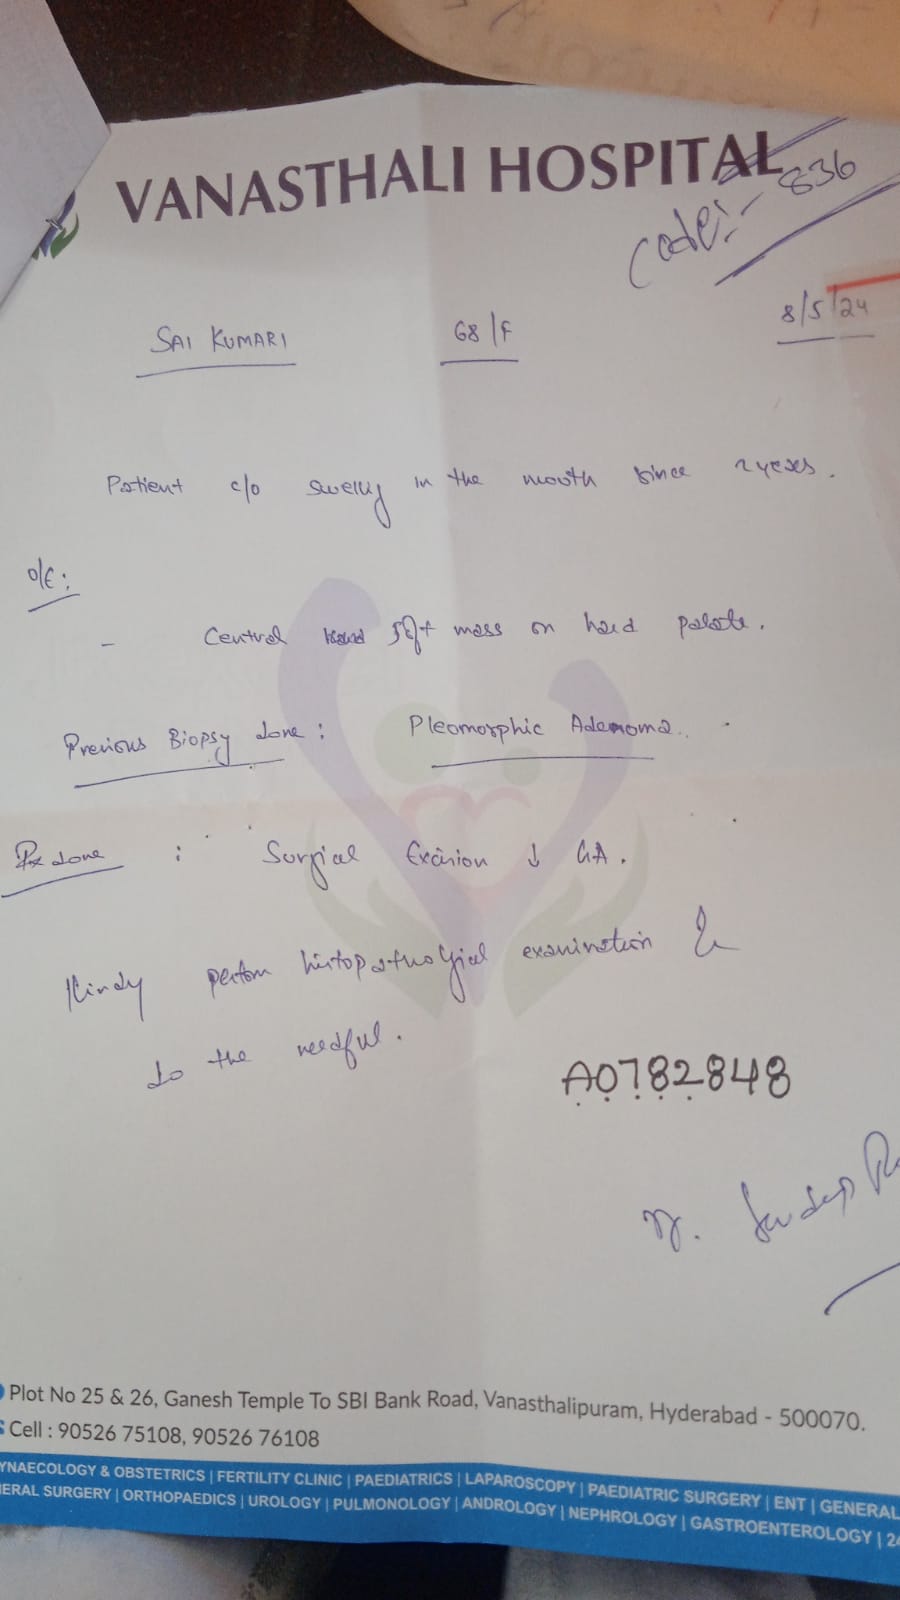 VANASTHALI HOSPITAL
Code:- 836
SAI KUMARI 68/F 8/5/24
Patient c/o swelling in the mouth since 2 years.
O/E:
- Central soft mass on hard palate.
Previous Biopsy done : Pleomorphic Adenoma.
Rx done : Surgical Excision ↓ GA.
Kindly perform histopathological examination &
do the needful.
A0782848
Dr. Sandeep
Plot No 25 & 26, Ganesh Temple To SBI Bank Road, Vanasthalipuram, Hyderabad - 500070.
Cell : 90526 75108, 90526 76108
YNAECOLOGY & OBSTETRICS | FERTILITY CLINIC | PAEDIATRICS | LAPAROSCOPY | PAEDIATRIC SURGERY | ENT | GENERAL
ERAL SURGERY | ORTHOPAEDICS | UROLOGY | PULMONOLOGY | ANDROLOGY | NEPHROLOGY | GASTROENTEROLOGY | 24